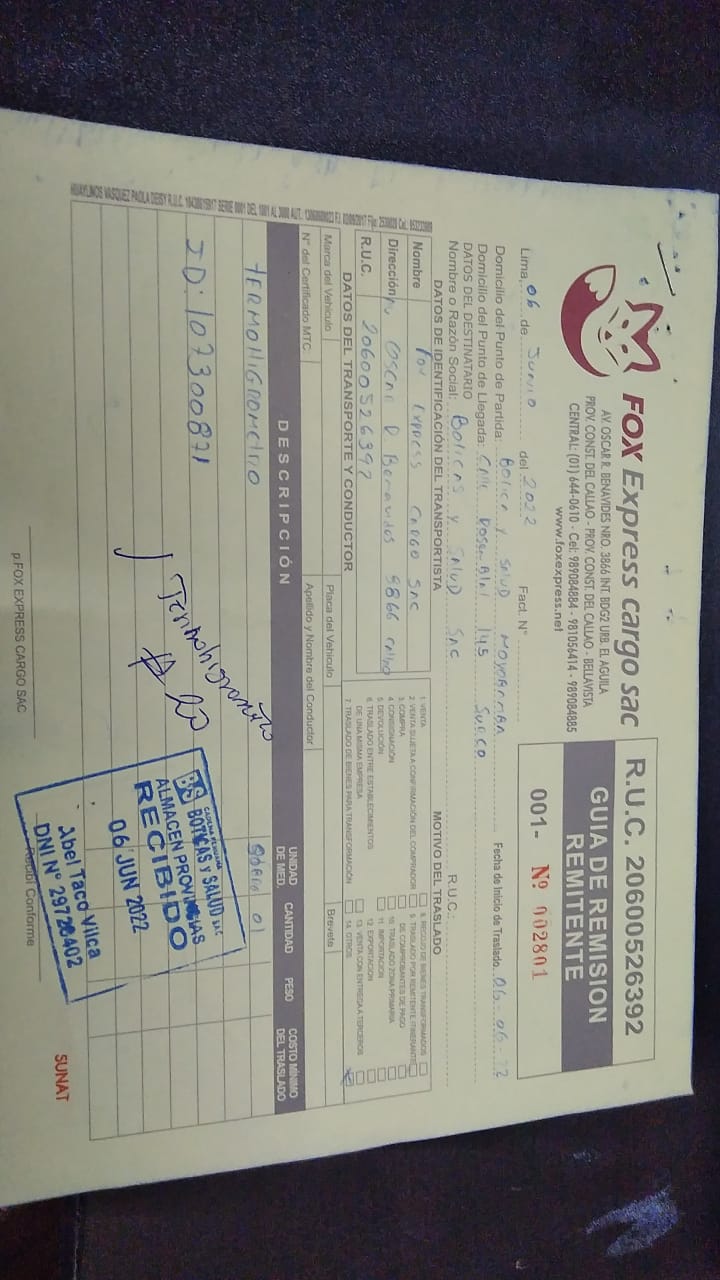 FOX Express cargo sac
AV. OSCAR R. BENAVIDES NRO. 3866 INT. BDG2 URB. EL AGUILA
PROV. CONST. DEL CALLAO - PROV. CONST. DEL CALLAO - BELLAVISTA
CENTRAL: (01) 644-0610 - Cel: 989084884 - 981056414 - 989084885
www.foxexpress.net
R.U.C. 20600526392
GUIA DE REMISION
REMITENTE
001- Nº 002801
Lima 06 de Junio del 2022 Fact. N°
Fecha de Inicio de Traslado. 06-06-22
Domicilio del Punto de Partida: Botica y Salud Moyobamba
Domicilio del Punto de Llegada: Calle 145 Surco
DATOS DEL DESTINATARIO
Nombre o Razón Social: Boticas y Salud SAC R.U.C.:
DATOS DE IDENTIFICACIÓN DEL TRANSPORTISTA
Nombre Fox Express Cargo SAC
Dirección Av Oscar R Benavides 3866 Callao
R.U.C. 20600526392
MOTIVO DEL TRASLADO
1. VENTA
2. VENTA SUJETA A CONFIRMACIÓN DEL COMPRADOR
3. COMPRA
4. CONSIGNACIÓN
5. DEVOLUCIÓN
6. TRASLADO ENTRE ESTABLECIMIENTOS
DE UNA MISMA EMPRESA
7. TRASLADO DE BIENES PARA TRANSFORMACIÓN
8. RECOJO DE BIENES TRANSFORMADOS
9. TRASLADO POR REMITENTE ITINERANTE
DE COMPROBANTES DE PAGO
10. TRASLADO ZONA PRIMARIA
11. IMPORTACIÓN
12. EXPORTACIÓN
13. VENTA CON ENTREGA A TERCEROS
14. OTROS
DATOS DEL TRANSPORTE Y CONDUCTOR
Marca del Vehiculo Placa del Vehiculo Brevete
N° del Certificado MTC Apellido y Nombre del Conductor
DESCRIPCIÓN UNIDAD DE MED. CANTIDAD PESO COSTO MÍNIMO DEL TRASLADO
TERMOHIGROMETRO 01
ID: 107300871
Termohigrometro
BS BOTICAS y SALUD SAC
ALMACEN PROVINCIAS
RECIBIDO
06 JUN 2022
Abel Taco Vilca
p.FOX EXPRESS CARGO SAC
Recibí Conforme
SUNAT